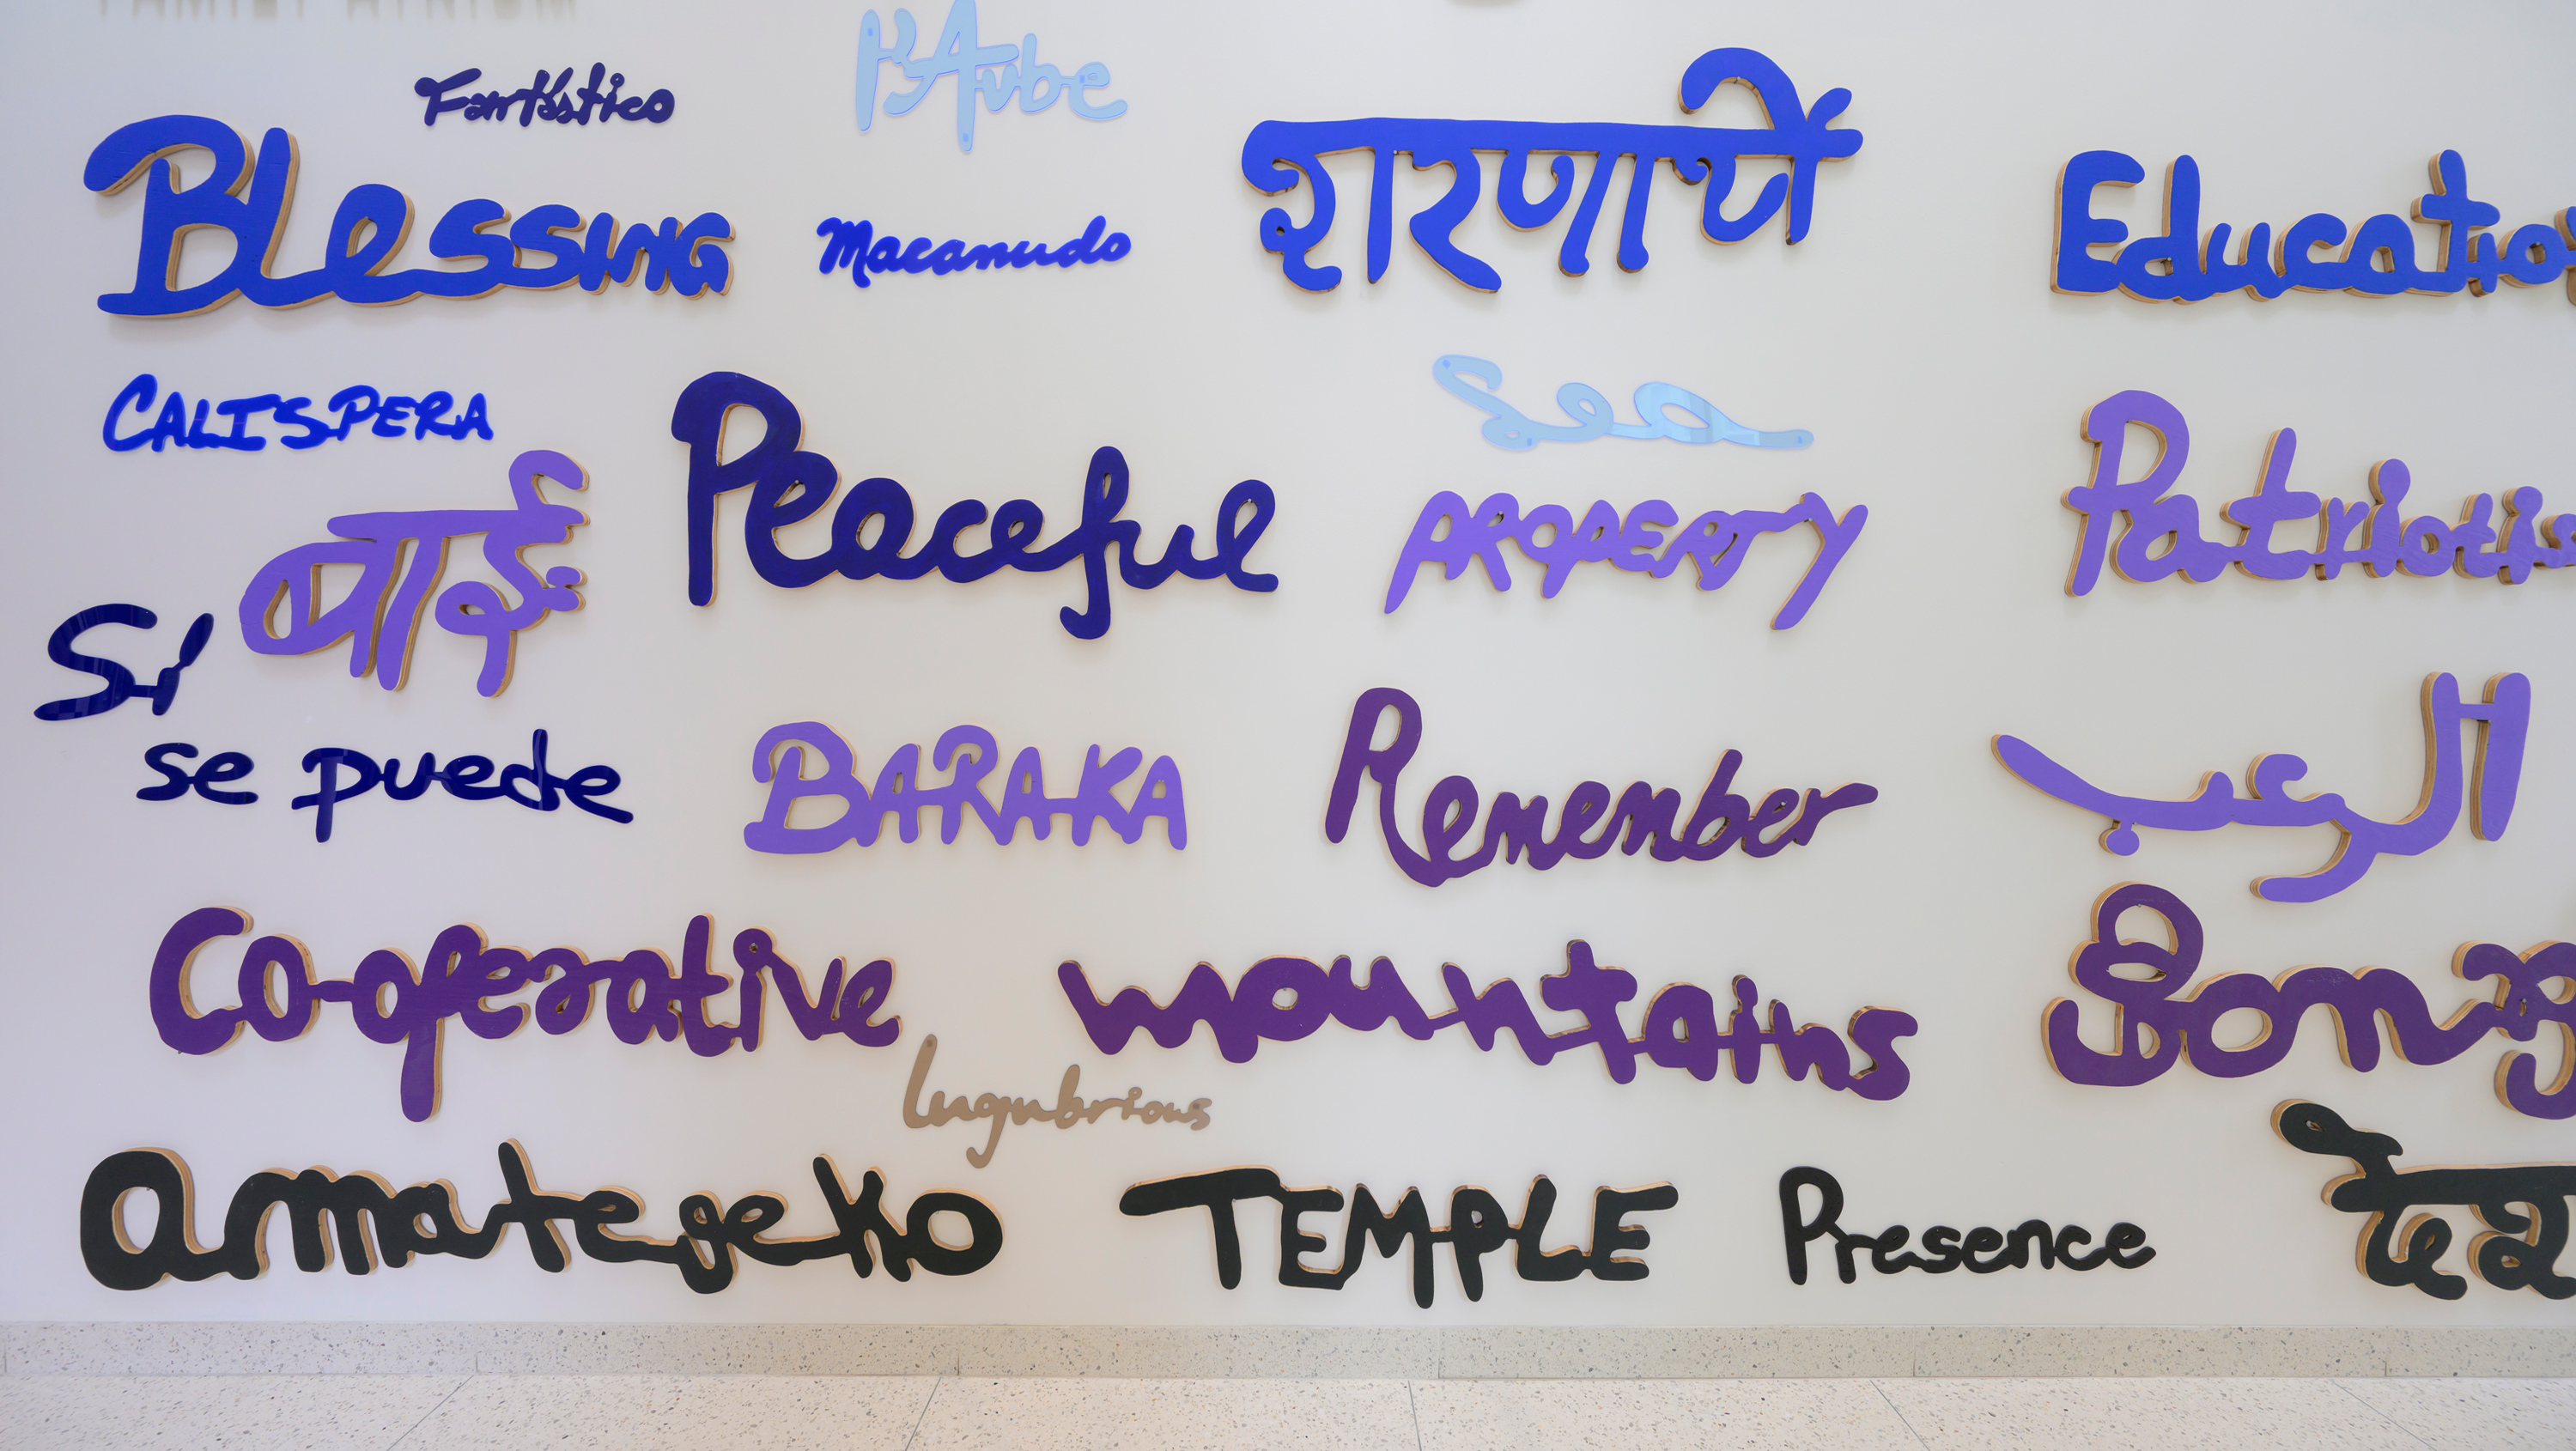 FAMILY ATRIUM
Fantástico
Blessing
Macanudo
शरणार्थी
Educatio
CALISPERA
Peaceful
Sea
PROPERTY
Patriotis
Sí
se puede
BARAKA
Remember
الرعب
Co-operative
mountains
Song
lugubrious
amategeko
TEMPLE
Presence